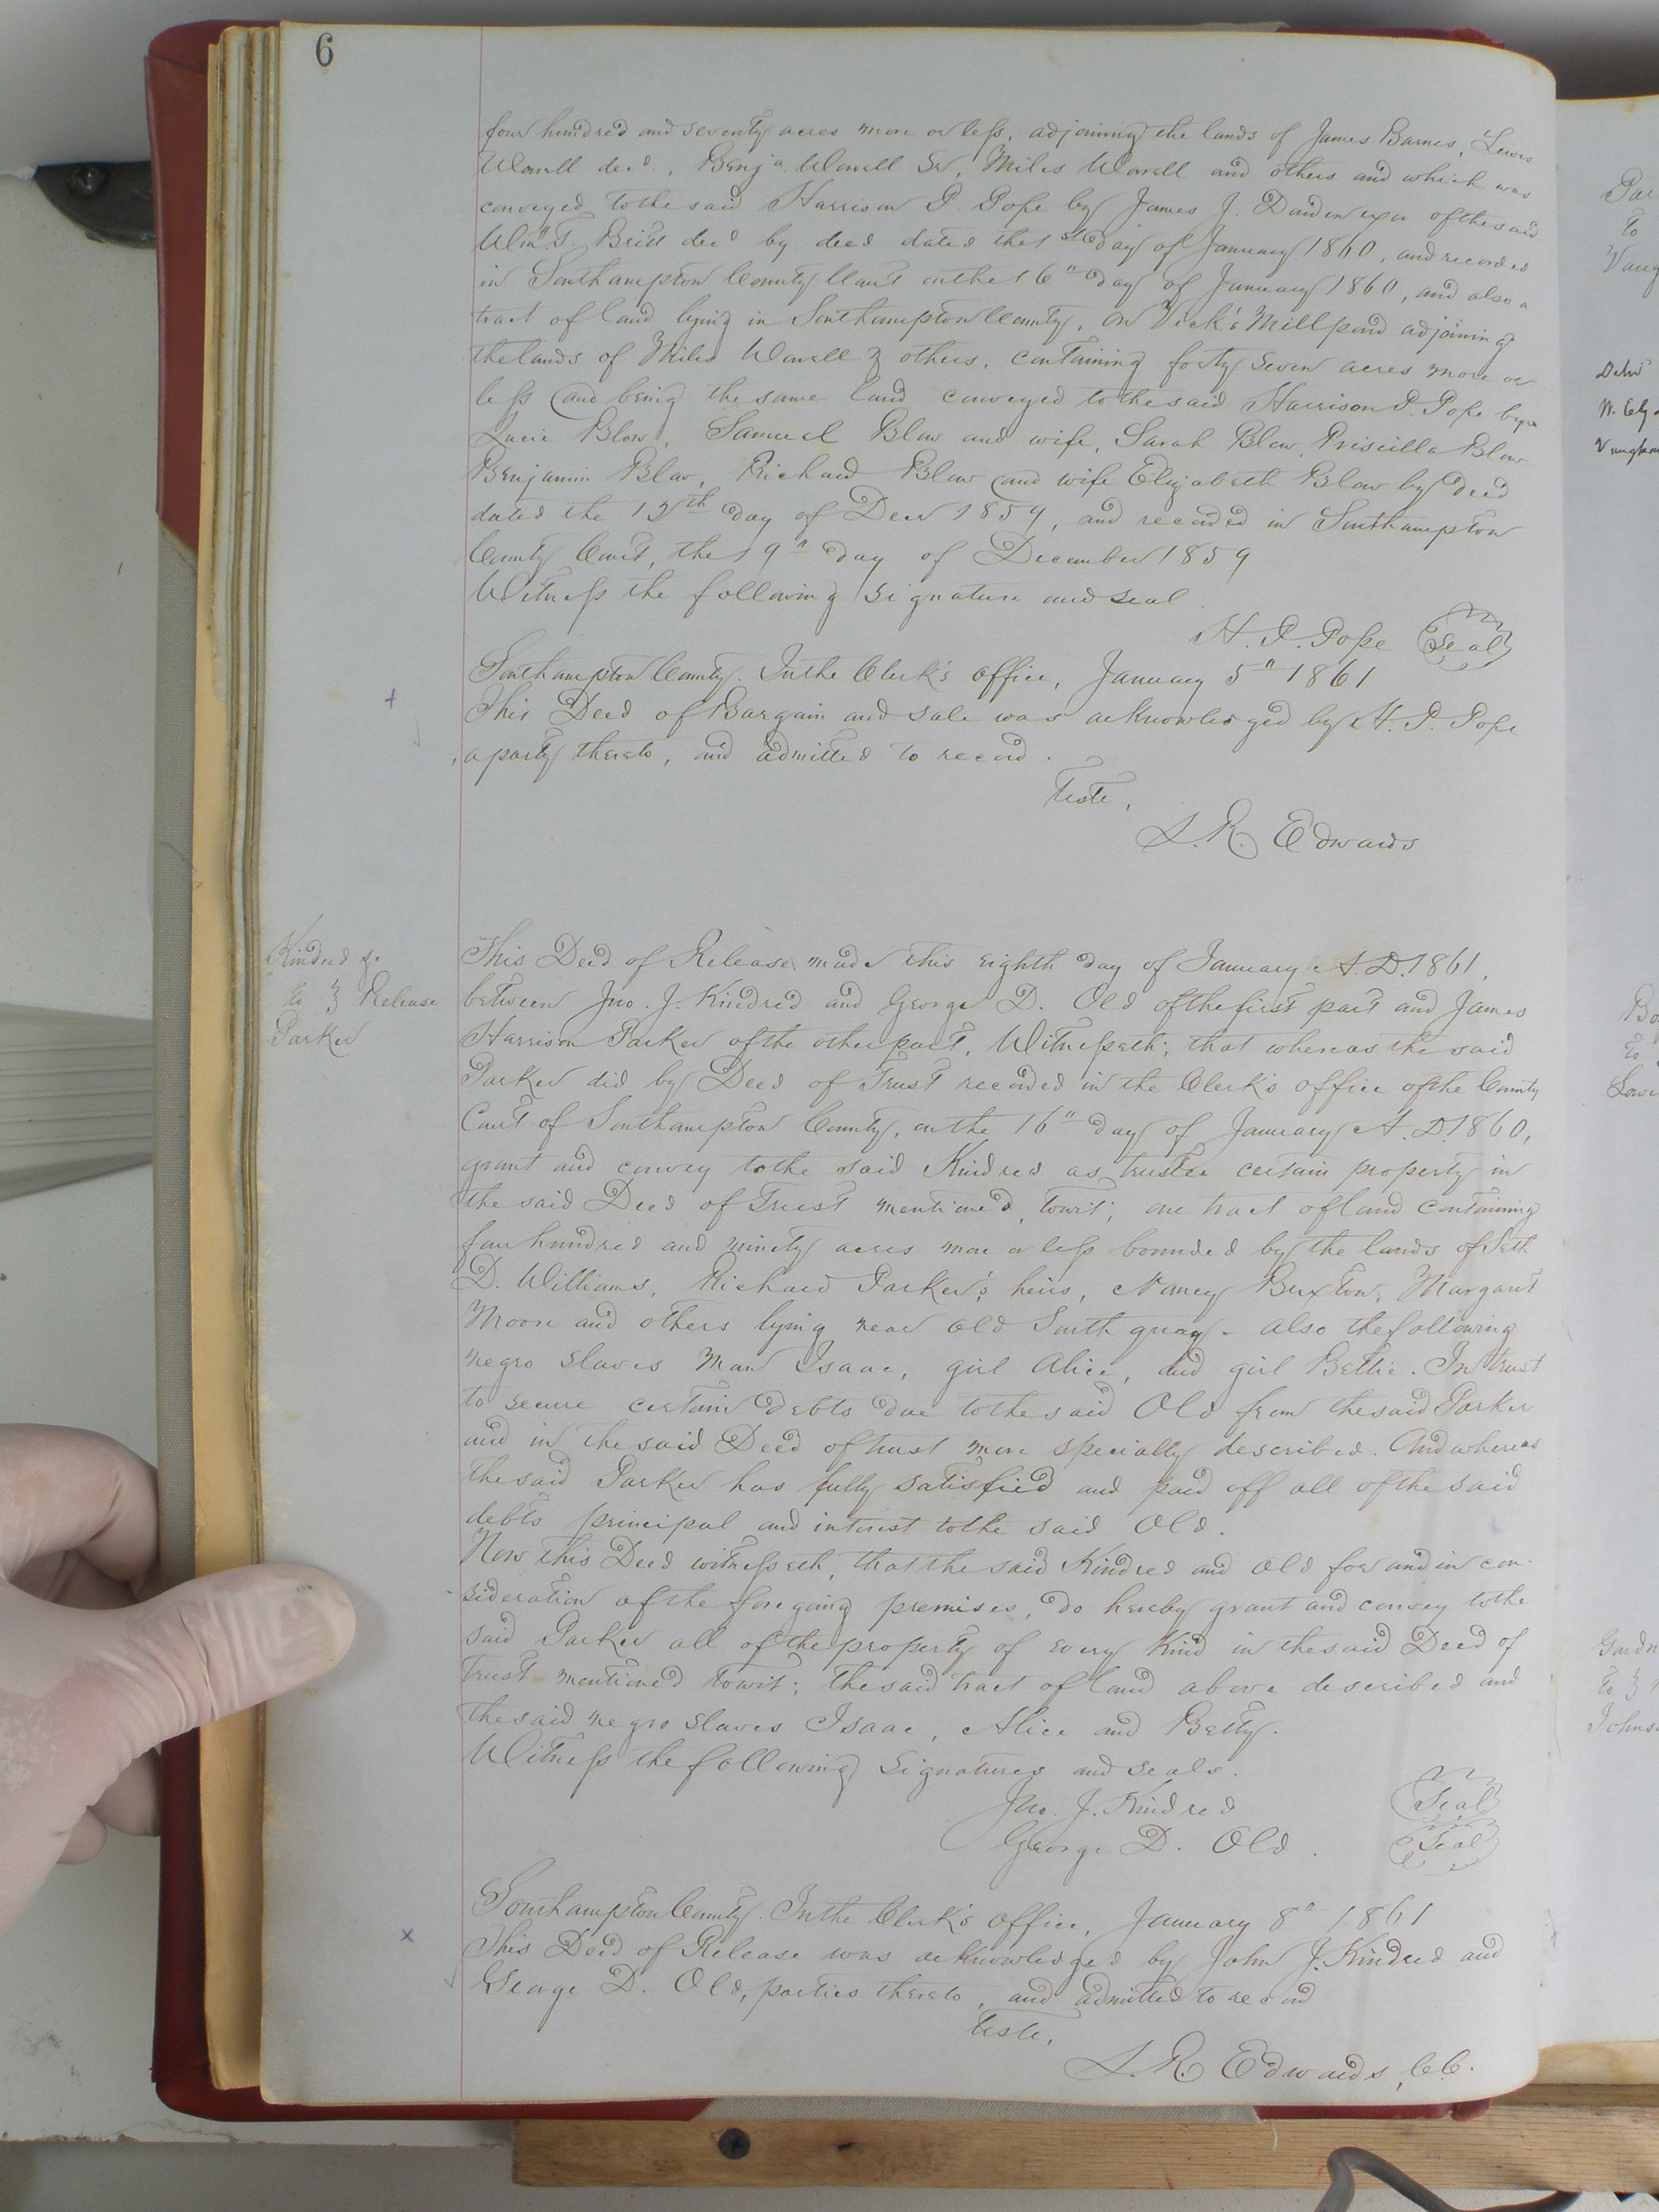 6
four hundred and seventy acres more or less, adjoining the lands of James Barnes, Lewis
Worrell decd., Benja. Worrell Sr, Miles Worrell and others and which was
conveyed to the said Harrison P. Pope by James J. Darden exor of the said
Wm. T. Britt decd by deed dated the 1st day of January 1860, and recorded
in Southampton County Court on the 16" day of January 1860, and also a
tract of land lying in Southampton County, on Vick's Millpond adjoining
the lands of Miles Worrell & others, containing forty seven acres more or
less and being the same land conveyed to the said Harrison P. Pope by
Lucie Blow, Samuel Blow and wife, Sarah Blow, Priscilla Blow
Benjamin Blow, Richard Blow and wife Elizabeth Blow by deed
dated the 12th day of Decr 1859, and recorded in Southampton
County Court, the 19" day of December 1859
Witness the following signature and seal
H. P. Pope Seal
Southampton County. In the Clerk's office, January 5" 1861
This Deed of Bargain and sale was acknowledged by H. P. Pope
a party thereto, and admitted to record.
Teste,
L. R. Edwards
Kindred &c
to } Release
Parker
This Deed of Release made this eighth day of January A. D. 1861,
between Jno. J. Kindred and George D. Old of the first part and James
Harrison Parker of the other part, Witnesseth; that whereas the said
Parker did by Deed of Trust recorded in the Clerk's office of the County
Court of Southampton County, on the 16" day of January A. D. 1860,
grant and convey to the said Kindred as trustee certain property in
the said Deed of Trust mentioned, towit; one tract of land containing
four hundred and ninety acres more or less bounded by the lands of Seth
D. Williams, Richard Parker's heirs, Nancy Buxton, Margaret
Moore and others lying near old South quay - also the following
negro slaves Man Isaac, girl Alice, and girl Bettie. In trust
to secure certain debts due to the said Old from the said Parker
and in the said Deed of trust more specially described. And whereas
the said Parker has fully satisfied and paid off all of the said
debts principal and interest to the said Old.
Now this Deed witnesseth, that the said Kindred and Old for and in con-
sideration of the foregoing premises, do hereby grant and convey to the
said Parker all of the property of every kind in the said Deed of
Trust mentioned towit; the said tract of land above described and
the said negro slaves Isaac, Alice and Betty.
Witness the following signatures and seals.
Jno. J. Kindred Seal
George D. Old. Seal
Southampton County. In the Clerk's office, January 8" 1861
This Deed of Release was acknowledged by John J. Kindred and
George D. Old, parties thereto, and admitted to record
Teste,
L. R. Edwards, C.C.